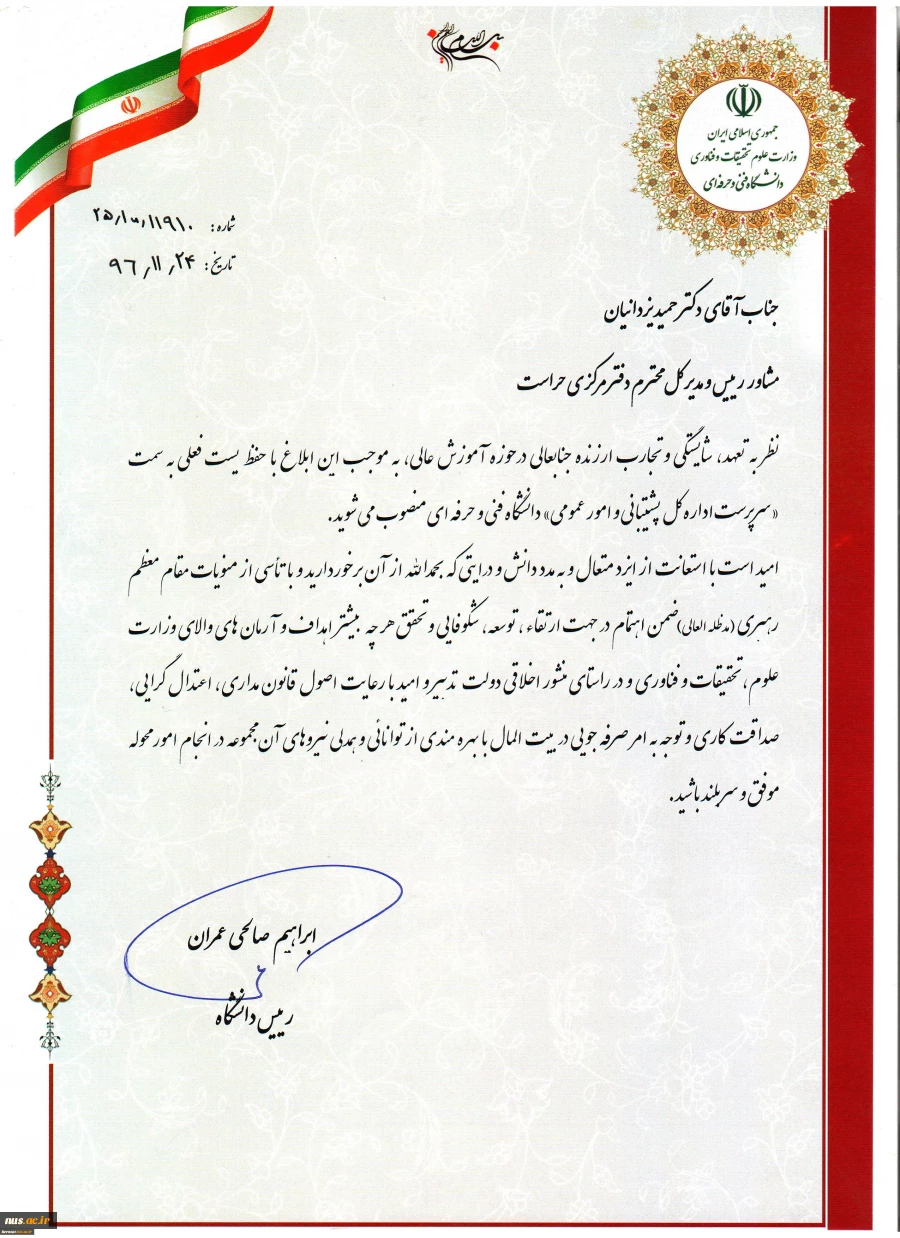 بسم الله الرحمن الرحیم
جمهوری اسلامی ایران
وزارت علوم تحقیقات و فناوری
دانشگاه فنی و حرفه ای
شماره:
تاریخ: ۹۶٫۱۱٫۲۴
جناب آقای دکتر حمید یزدانیان
مشاور رییس و مدیرکل محترم دفتر مرکزی حراست
نظر به تعهد، شایستگی و تجارب ارزنده جنابعالی در حوزه آموزش عالی، به موجب این ابلاغ با حفظ پست فعلی به سمت
«سرپرست اداره کل پشتیبانی و امور عمومی» دانشگاه فنی و حرفه ای منصوب می شوید.
امید است با استعانت از ایزد متعال و به مدد دانش و درایتی که بحمدالله از آن برخوردارید و با تأسی از منویات مقام معظم
رهبری (مدظله العالی) ضمن اهتمام در جهت ارتقاء، توسعه، شکوفایی و تحقق هر چه بیشتر اهداف و آرمان های والای وزارت
علوم، تحقیقات و فناوری و در راستای منشور اخلاقی دولت تدبیر و امید با رعایت اصول قانون مداری، اعتدال گرایی،
صداقت کاری و توجه به امر صرفه جویی در بیت المال با بهره مندی از توانائی و همدلی نیروهای آن مجموعه در انجام امور محوله
موفق و سربلند باشید.
ابراهیم صالحی عمران
رییس دانشگاه
nus.ac.ir